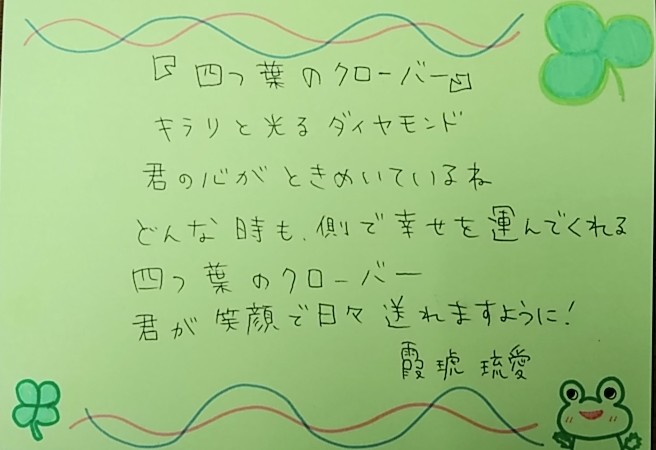 『四つ葉のクローバー』
キラリと光るダイヤモンド
君の心がときめいているね
どんな時も、側で幸せを運んでくれる
四つ葉のクローバー
君が笑顔で日々送れますように！
霞琥 琉愛